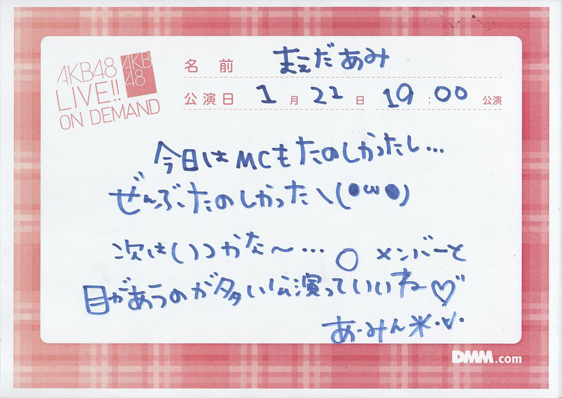 AKB48
LIVE!!
ON DEMAND
AKB
48
名前 まえだあみ
公演日 1月21日 19:00 公演
今日はMCもたのしかったし…
ぜんぶたのしかった\(●ω●)
次はいつかな〜…○ メンバーと
目があうのが多い公演っていいね♡
あーみん
DMM.com